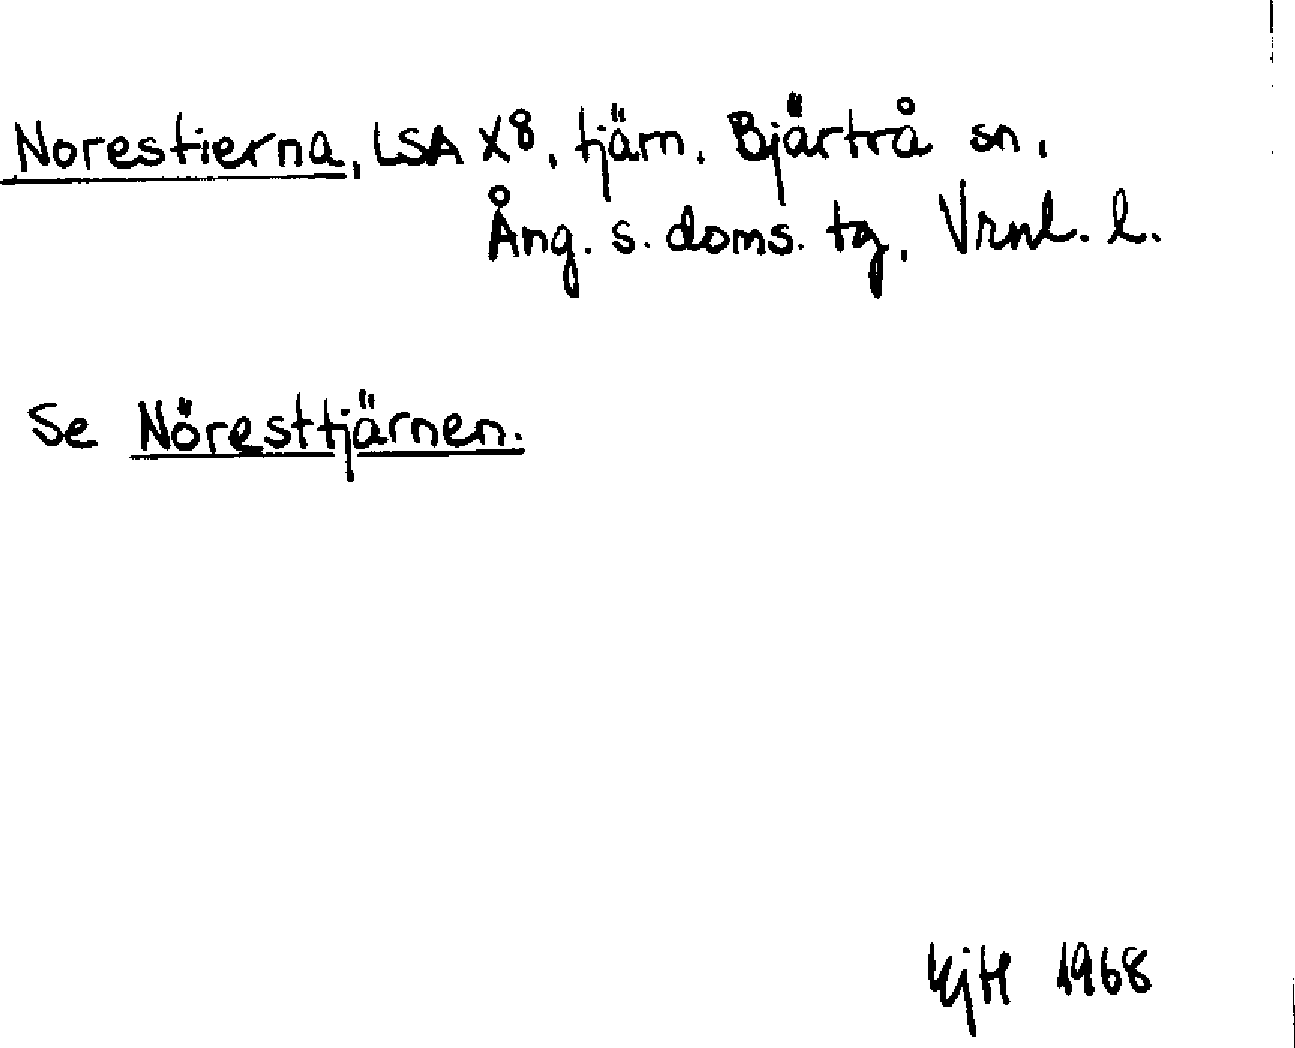 Norestierna, LSA X8, tjärn. Bjärtrå sn,
Ång. s. doms. tg, Vrnl. l.
Se Nöresttjärnen.
1968